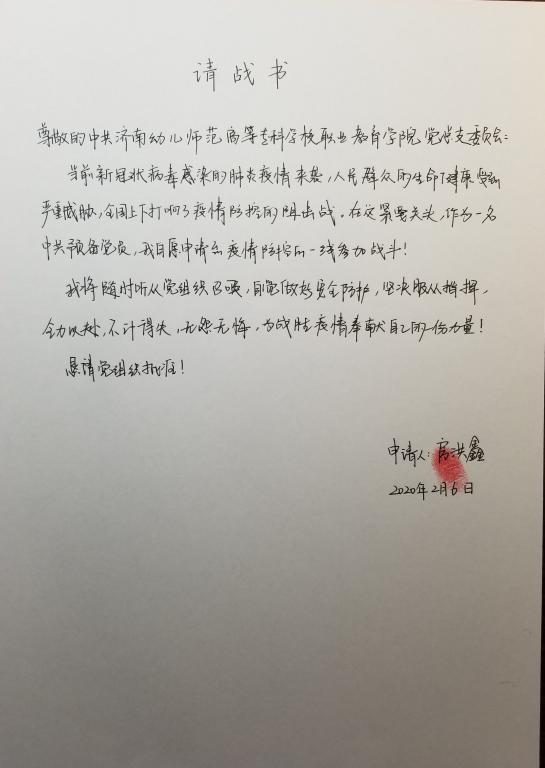 请战书
尊敬的中共济南幼儿师范高等专科学校职业教育学院党总支委员会：
当前新冠状病毒感染的肺炎疫情来袭，人民群众的生命健康受到
严重威胁，全国上下打响了疫情防控的阻击战。在这紧要关头，作为一名
中共预备党员，我自愿申请到疫情防控的一线参加战斗！
我将随时听从党组织召唤，自觉做好安全防护，坚决服从指挥，
全力以赴，不计得失，无怨无悔，为战胜疫情奉献自己的一份力量！
恳请党组织批准！
申请人：房洪鑫
2020年2月6日